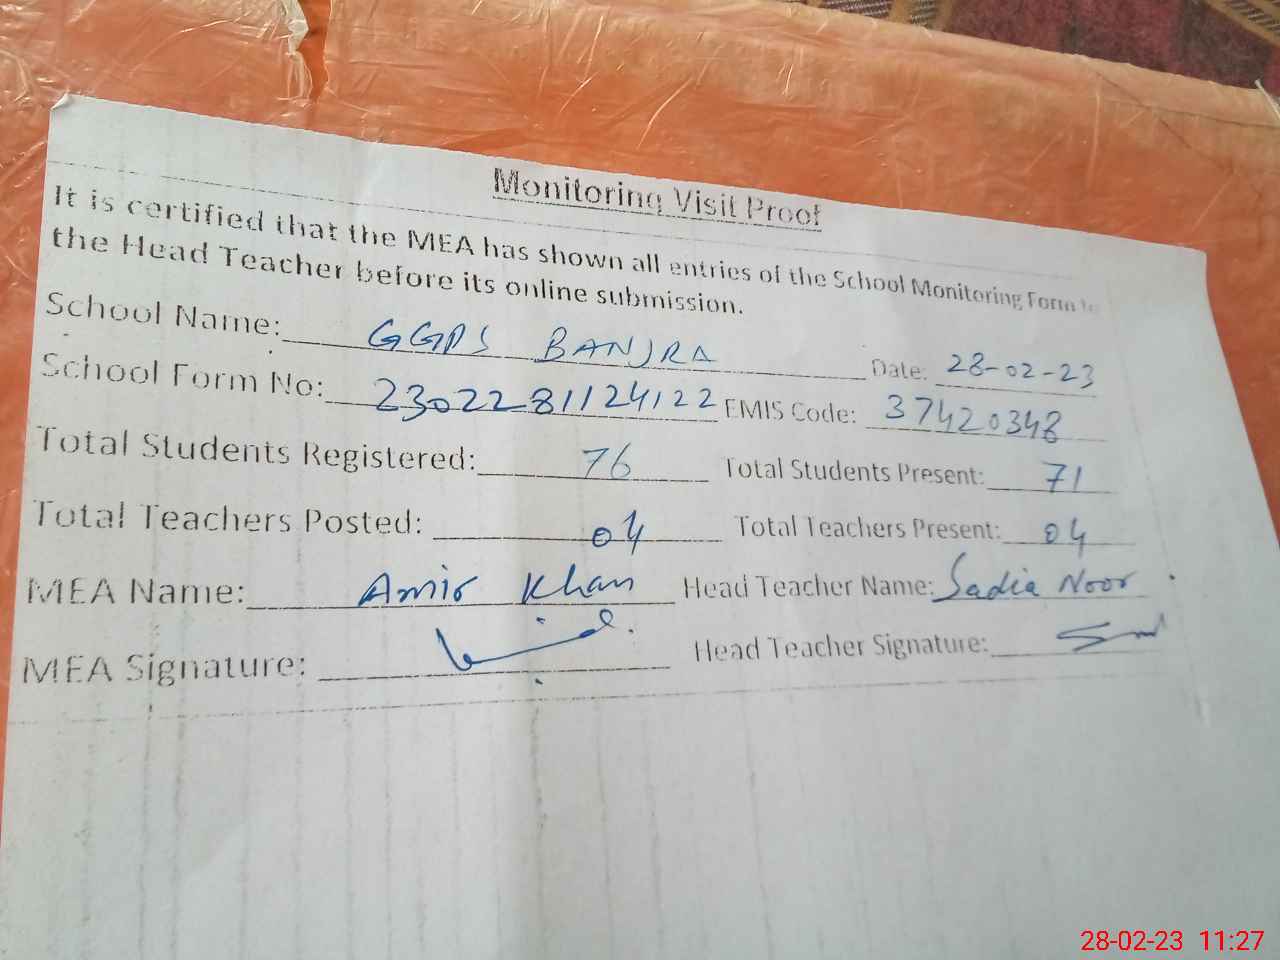 Monitoring Visit Proof
It is certified that the MEA has shown all entries of the School Monitoring Form to
the Head Teacher before its online submission.
School Name: GGPS BANJRA Date: 28-02-23
School Form No: 2302281124122 EMIS Code: 37420348
Total Students Registered: 76 Total Students Present: 71
Total Teachers Posted: 04 Total Teachers Present: 04
MEA Name: Amir Khan Head Teacher Name: Sadia Noor
MEA Signature: Head Teacher Signature:
28-02-23 11:27